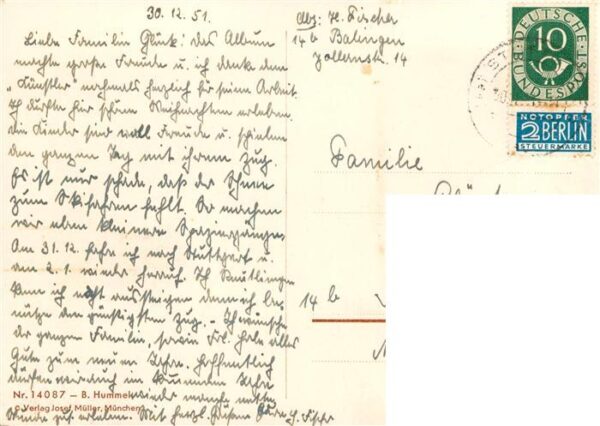 30.12.51.
Liebe Familie Glück! das Album
machte große Freude u. ich danke dem
„Künstler" nochmals herzlich für seine Arbeit
Ich durfte hier schöne Weihnachten erleben,
die Kinder sind voll Freude u. spielen
den ganzen Tag mit ihrem Zug.
Es ist nur schade, daß der Schnee
zum Skifahren fehlt. So machen
wir eben kleinere Spaziergänge.
Am 31.12. fahre ich nach Stuttgart u.
am 2.1. wieder herauf. In
kann ich nicht aussteigen denn ich be-
nütze den günstigsten Zug. – Ich wünsche
der ganzen Familie, sowie Frl. alles
Gute zum neuen Jahre. Hoffentlich
dürfen wir auch im kommenden Jahre
wieder manche netten
zus. erleben. Mit herzl. Grüßen Ihre H. Fischer
Nr. 14087 – B. Hummel
© Verlag Josef Müller, München
Abs: H. Fischer
14b Balingen
Zollernstr. 14
DEUTSCHE
10
BUNDESPOST
NOTOPFER
2 BERLIN
STEUERMARKE
Familie
14 b